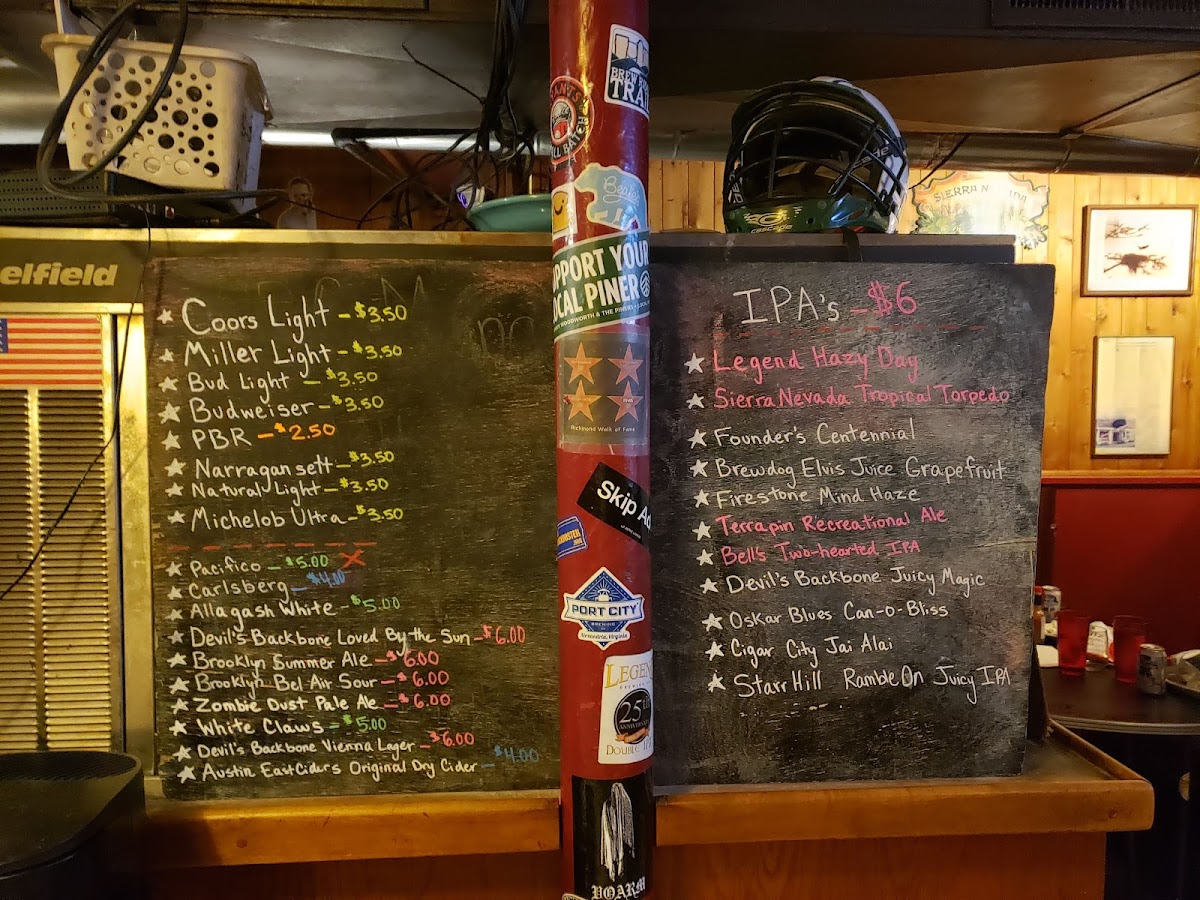 elfield
Coors Light - $3.50
Miller Light - $3.50
Bud Light - $3.50
Budweiser - $3.50
PBR - $2.50
Narragansett - $3.50
Natural Light - $3.50
Michelob Ultra - $3.50
Pacifico - $5.00 X
Carlsberg - $4.00
Allagash White - $5.00
Devil's Backbone Loved By the Sun - $6.00
Brooklyn Summer Ale - $6.00
Brooklyn Bel Air Sour - $6.00
Zombie Dust Pale Ale - $6.00
White Claws - $5.00
Devil's Backbone Vienna Lager - $6.00
Austin EastCiders Original Dry Cider - $4.00
TRAIL
UPPORT YOUR
OCAL PINER
WOODWORTH & THE PINERS
Richmond Walk of Fame
Skip Ad
PORT CITY
BREWING
Alexandria, Virginia
LEGEND
25
ANNIVERSARY
DOUBLE
VOARM
cascade
SIERRA
IPA's - $6
Legend Hazy Day
Sierra Nevada Tropical Torpedo
Founder's Centennial
Brewdog Elvis Juice Grapefruit
Firestone Mind Haze
Terrapin Recreational Ale
Bell's Two-hearted IPA
Devil's Backbone Juicy Magic
Oskar Blues Can-o-Bliss
Cigar City Jai Alai
Starr Hill Ramble On Juicy IPA